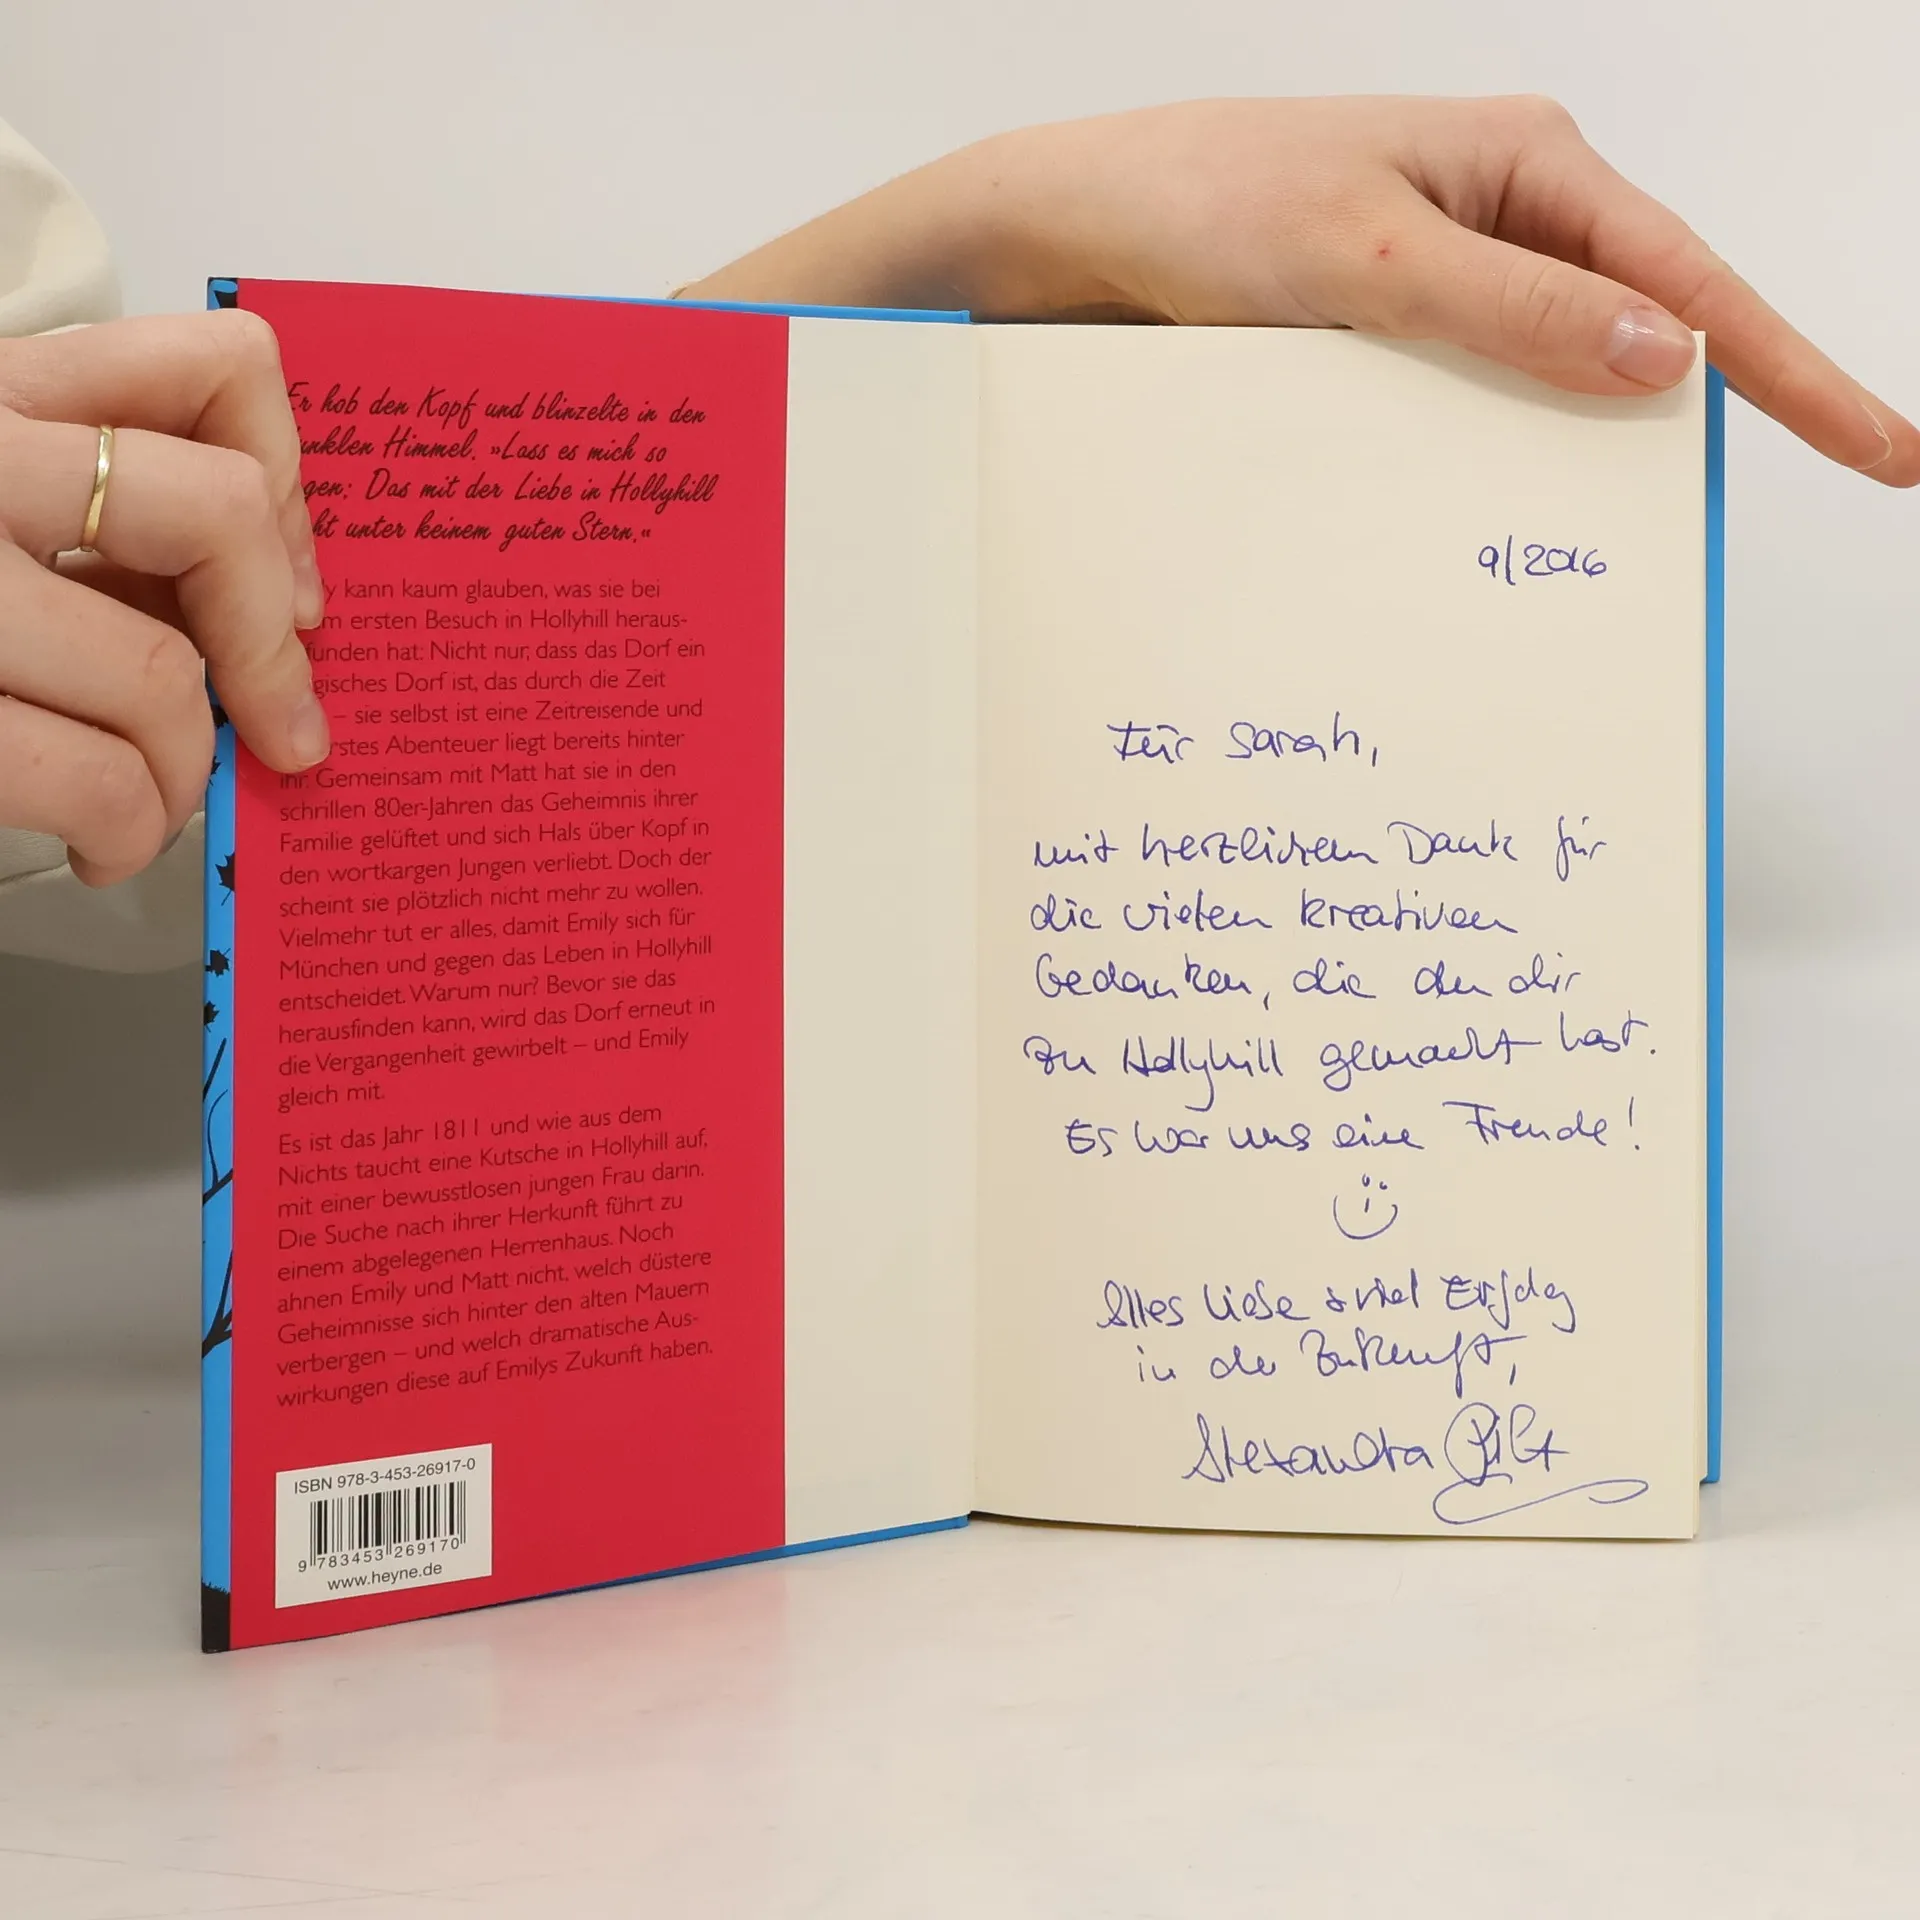 Er hob den Kopf und blinzelte in den
unklen Himmel. »Lass es mich so
gen: Das mit der Liebe in Hollyhill
ht unter keinem guten Stern.«
y kann kaum glauben, was sie bei
m ersten Besuch in Hollyhill heraus-
funden hat: Nicht nur, dass das Dorf ein
gisches Dorf ist, das durch die Zeit
– sie selbst ist eine Zeitreisende und
rstes Abenteuer liegt bereits hinter
ihr. Gemeinsam mit Matt hat sie in den
schrillen 80er-Jahren das Geheimnis ihrer
Familie gelüftet und sich Hals über Kopf in
den wortkargen Jungen verliebt. Doch der
scheint sie plötzlich nicht mehr zu wollen.
Vielmehr tut er alles, damit Emily sich für
München und gegen das Leben in Hollyhill
entscheidet. Warum nur? Bevor sie das
herausfinden kann, wird das Dorf erneut in
die Vergangenheit gewirbelt – und Emily
gleich mit.
Es ist das Jahr 1811 und wie aus dem
Nichts taucht eine Kutsche in Hollyhill auf,
mit einer bewusstlosen jungen Frau darin.
Die Suche nach ihrer Herkunft führt zu
einem abgelegenen Herrenhaus. Noch
ahnen Emily und Matt nicht, welch düstere
Geheimnisse sich hinter den alten Mauern
verbergen – und welch dramatische Aus-
wirkungen diese auf Emilys Zukunft haben.
ISBN 978-3-453-26917-0
9 783453 269170
www.heyne.de
9/2016
Für Sarah,
mit herzlichem Dank für
die vielen kreativen
Gedanken, die du dir
zu Hollyhill gemacht hast.
Es war uns eine Freude!
Alles Liebe & viel Erfolg
in der Zukunft,